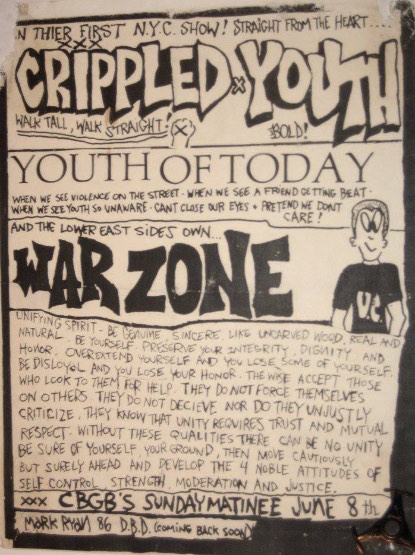 N THIER FIRST N.Y.C. SHOW! STRAIGHT FROM THE HEART....
XXX
CRIPPLED X YOUTH
WALK TALL, WALK STRAIGHT! X BOLD!
YOUTH OF TODAY
WHEN WE SEE VIOLENCE ON THE STREET - WHEN WE SEE A FRIEND GETTING BEAT -
WHEN WE SEE YOUTH SO UNAWARE - CANT CLOSE OUR EYES + PRETEND WE DONT
CARE!
AND THE LOWER EAST SIDES OWN...
WAR ZONE
UNIFYING SPIRIT - BE GENUINE, SINCERE, LIKE UNCARVED WOOD, REAL AND
NATURAL. BE YOURSELF. PRESERVE YOUR INTEGRITY, DIGNITY AND
HONOR. OVEREXTEND YOURSELF AND YOU LOSE SOME OF YOURSELF.
BE DISLOYAL AND YOU LOSE YOUR HONOR. THE WISE ACCEPT THOSE
WHO LOOK TO THEM FOR HELP. THEY DO NOT FORCE THEMSELVES
ON OTHERS THEY DO NOT DECIEVE NOR DO THEY UNJUSTLY
CRITICIZE. THEY KNOW THAT UNITY REQUIRES TRUST AND MUTUAL
RESPECT. WITHOUT THESE QUALITIES THERE CAN BE NO UNITY
BE SURE OF YOURSELF, YOUR GROUND, THEN MOVE CAUTIOUSLY
BUT SURELY AHEAD AND DEVELOP THE 4 NOBLE ATTITUDES OF
SELF CONTROL, STRENGTH, MODERATION AND JUSTICE.
XXX CBGB'S SUNDAY MATINEE JUNE 8th
MARK RYAN 86 D.B.D. (COMING BACK SOON)